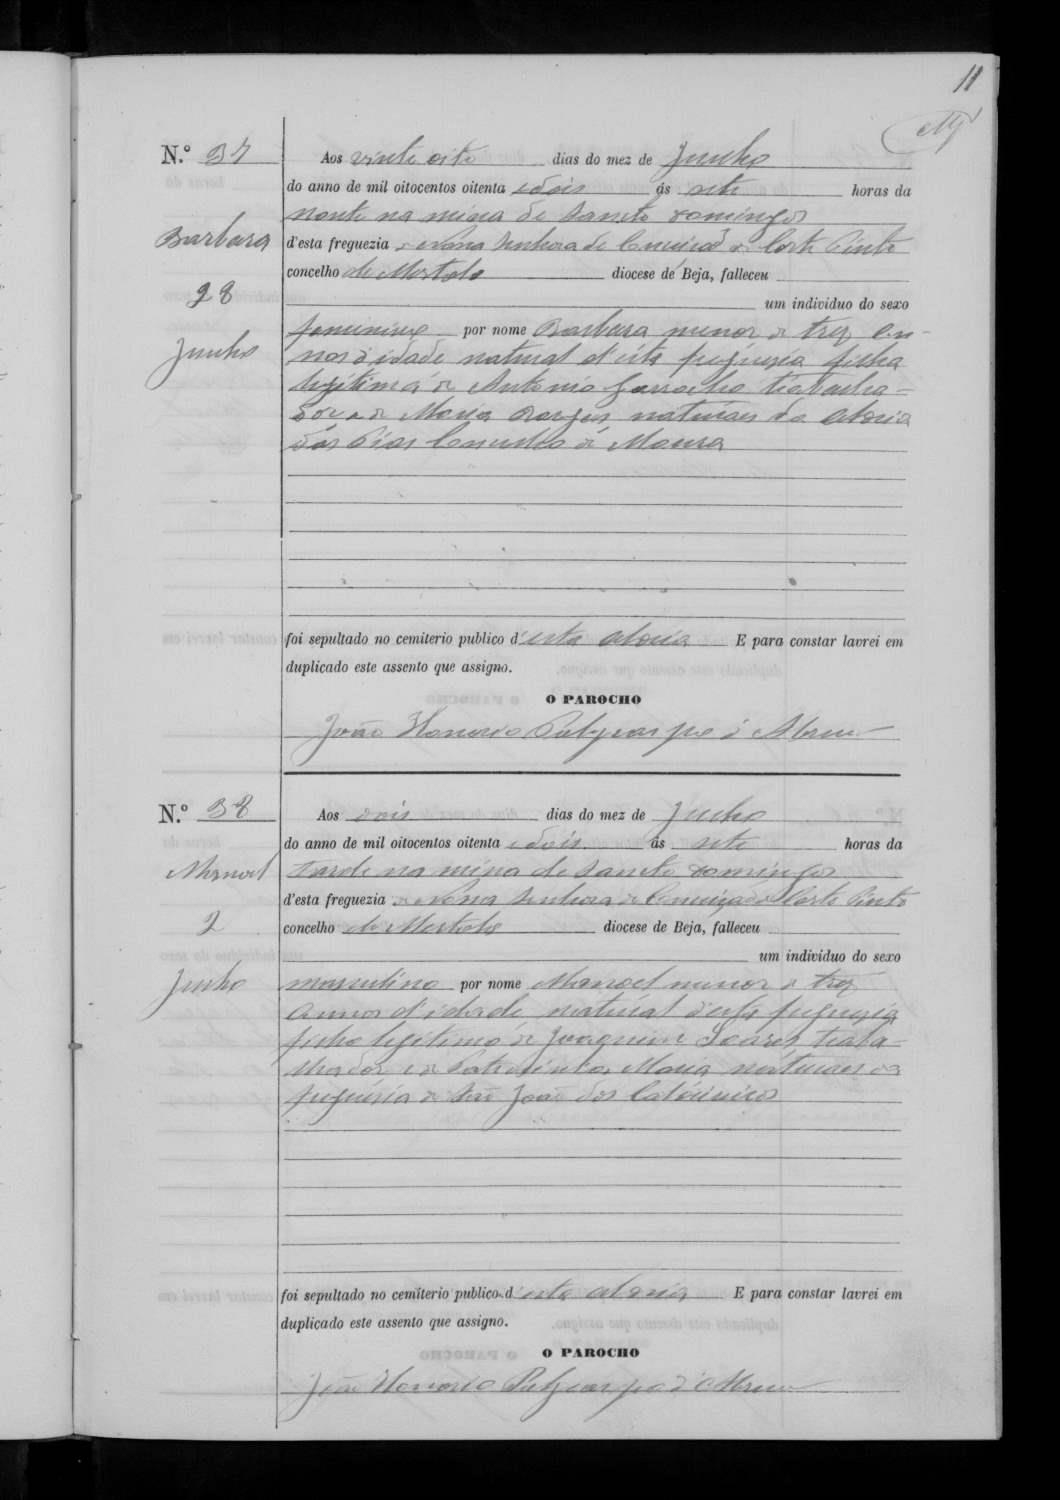 11
N.º 37
Aos vinte oito dias do mez de Junho
do anno de mil oitocentos oitenta e dois ás sete horas da
noute na mina de Sancto Domingos
Barbara
d'esta freguezia de Nossa Senhora da Conceição de Corte Pinto
concelho de Mertola diocese de Beja, falleceu
28
um individuo do sexo
Junho
femenino por nome Barbara menor de trez an-
nos d'idade natural d'esta freguezia filha
legitima de Antonio Garrocho trabalha-
dor e de Maria Borges naturaes da aldeia
dos Pias Concelho de Moura
foi sepultado no cemiterio publico d'esta aldeia E para constar lavrei em
duplicado este assento que assigno.
O PAROCHO
João Honorio Polycarpo d'Abreu
N.º 38
Aos dois dias do mez de Junho
do anno de mil oitocentos oitenta e dois ás sete horas da
Manoel
tarde na mina de Sancto Domingos
d'esta freguezia de Nossa Senhora da Conceição de Corte Pinto
2
concelho de Mertola diocese de Beja, falleceu
um individuo do sexo
Junho
masculino por nome Manoel menor de trez
annos d'idade natural d'esta freguezia
filho legitimo de Joaquim Soares traba-
lhador e de Patrocinia Maria naturaes da
freguezia de São João dos Caldeireiros
foi sepultado no cemiterio publico d'esta aldeia E para constar lavrei em
duplicado este assento que assigno.
O PAROCHO
João Honorio Polycarpo d'Abreu